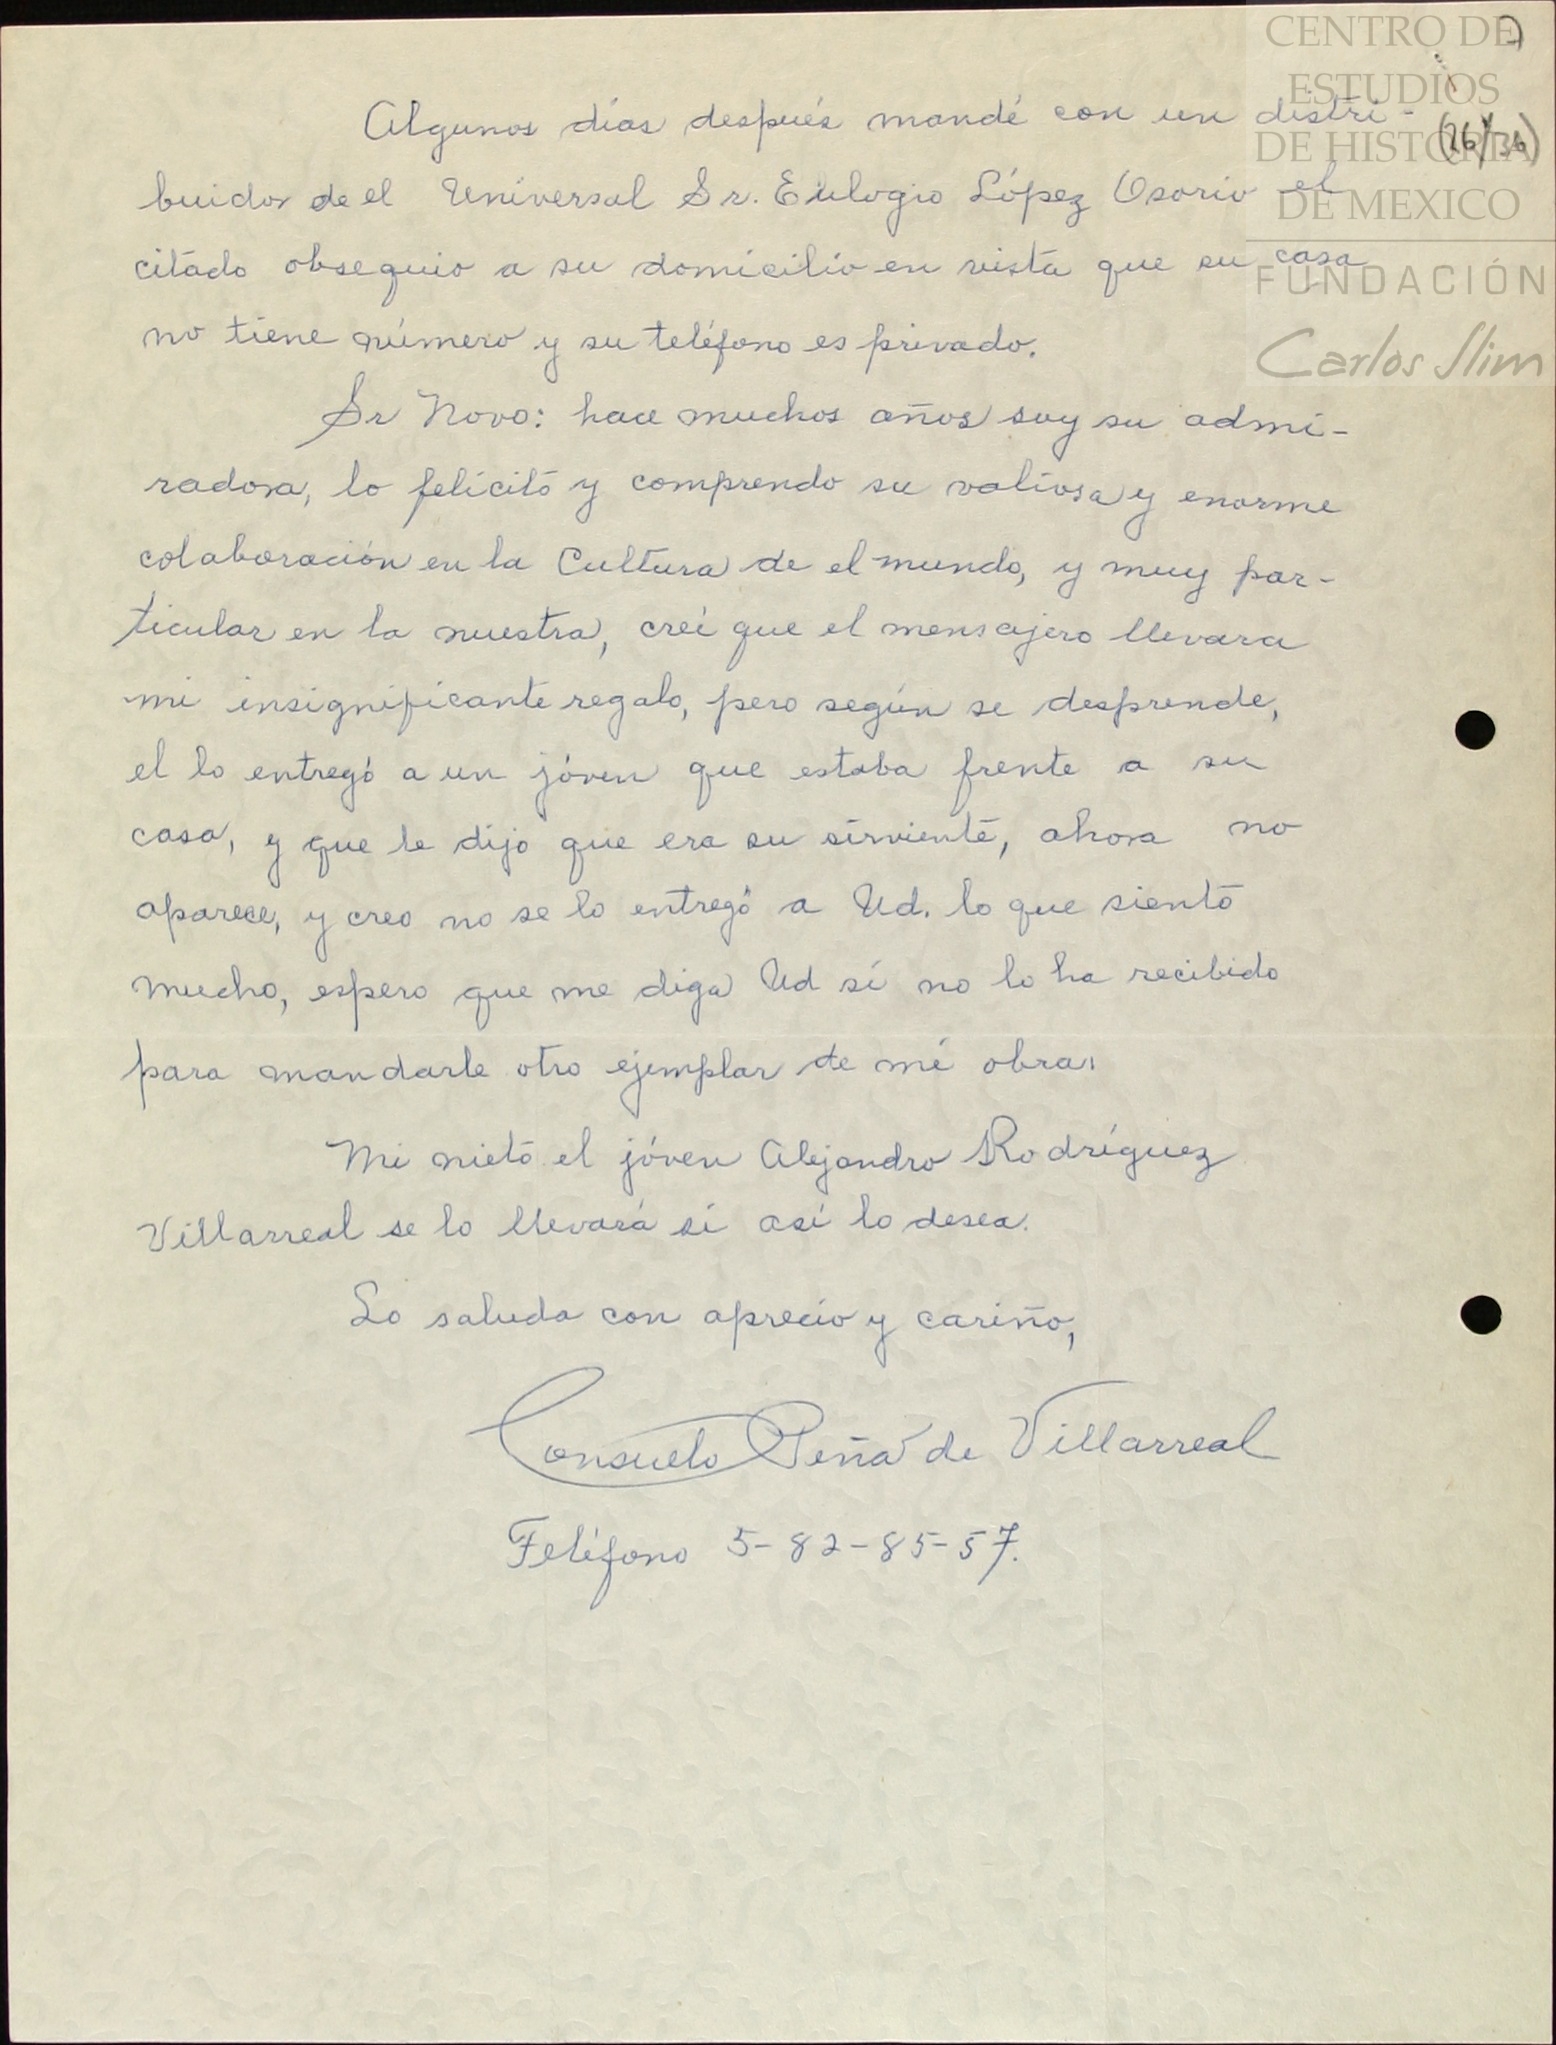 CENTRO DE
ESTUDIOS
DE HISTORIA
DE MEXICO
FUNDACIÓN
Carlos Slim
(26/36)
Algunos días después mandé con un distri-
buidor de el Universal Sr. Eulogio López Osorio el
citado obsequio a su domicilio en vista que su casa
no tiene número y su teléfono es privado.
Sr Novo: hace muchos años soy su admi-
radora, lo felicito y comprendo su valiosa y enorme
colaboración en la Cultura de el mundo, y muy par-
ticular en la nuestra, creí que el mensajero llevara
mi insignificante regalo, pero según se desprende,
el lo entregó a un jóven que estaba frente a su
casa, y que le dijo que era su sirviente, ahora no
aparece, y creo no se lo entregó a Ud. lo que siento
mucho, espero que me diga Ud sí no lo ha recibido
para mandarle otro ejemplar de mi obra.
Mi nieto el jóven Alejandro Rodríguez
Villarreal se lo llevará sí así lo desea.
Lo saluda con aprecio y cariño,
Consuelo Peña de Villarreal
Teléfono 5-82-85-57.